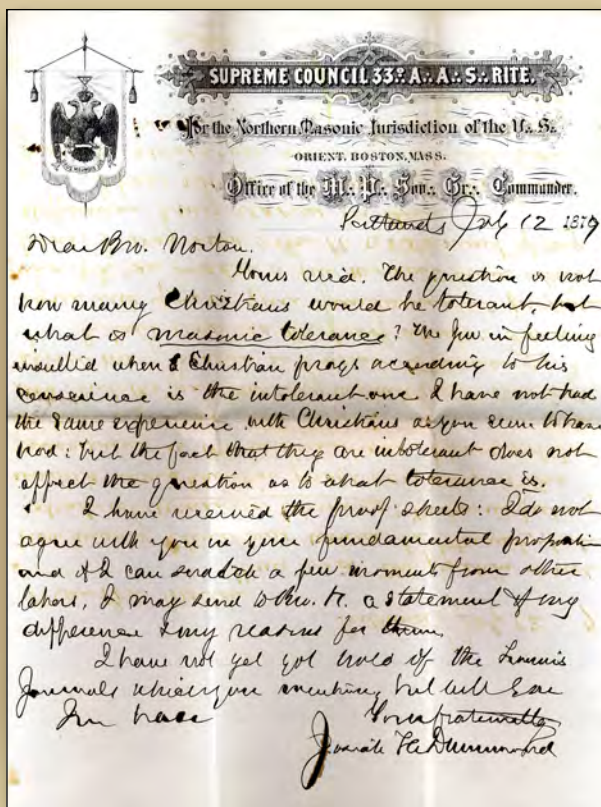 SUPREME COUNCIL 33º A∴ A∴ S∴ RITE.
For the Northern Masonic Jurisdiction of the U∴ S∴
ORIENT, BOSTON, MASS.
Office of the M∴ P∴ Sov∴ Gr∴ Commander.
Portland, July 12 1879
Dear Bro. Norton.
Yours recd. The question is not
how many Christians would be tolerant, but
what is masonic tolerance? The Jew in feeling
insulted when a Christian prays according to his
conscience is the intolerant one. I have not had
the same experience with Christians as you seem to have
had: but the fact that they are intolerant does not
affect the question as to what tolerance is.
I have received the proof sheets: I do not
agree with you in your fundamental proposition
and if I can snatch a few moments from other
labors, I may send to Bro. N. a statement of my
difference & my reasons for them.
I have not yet got hold of the
Journals which you mention, but will
In haste
Yours fraternally
Josiah H. Drummond